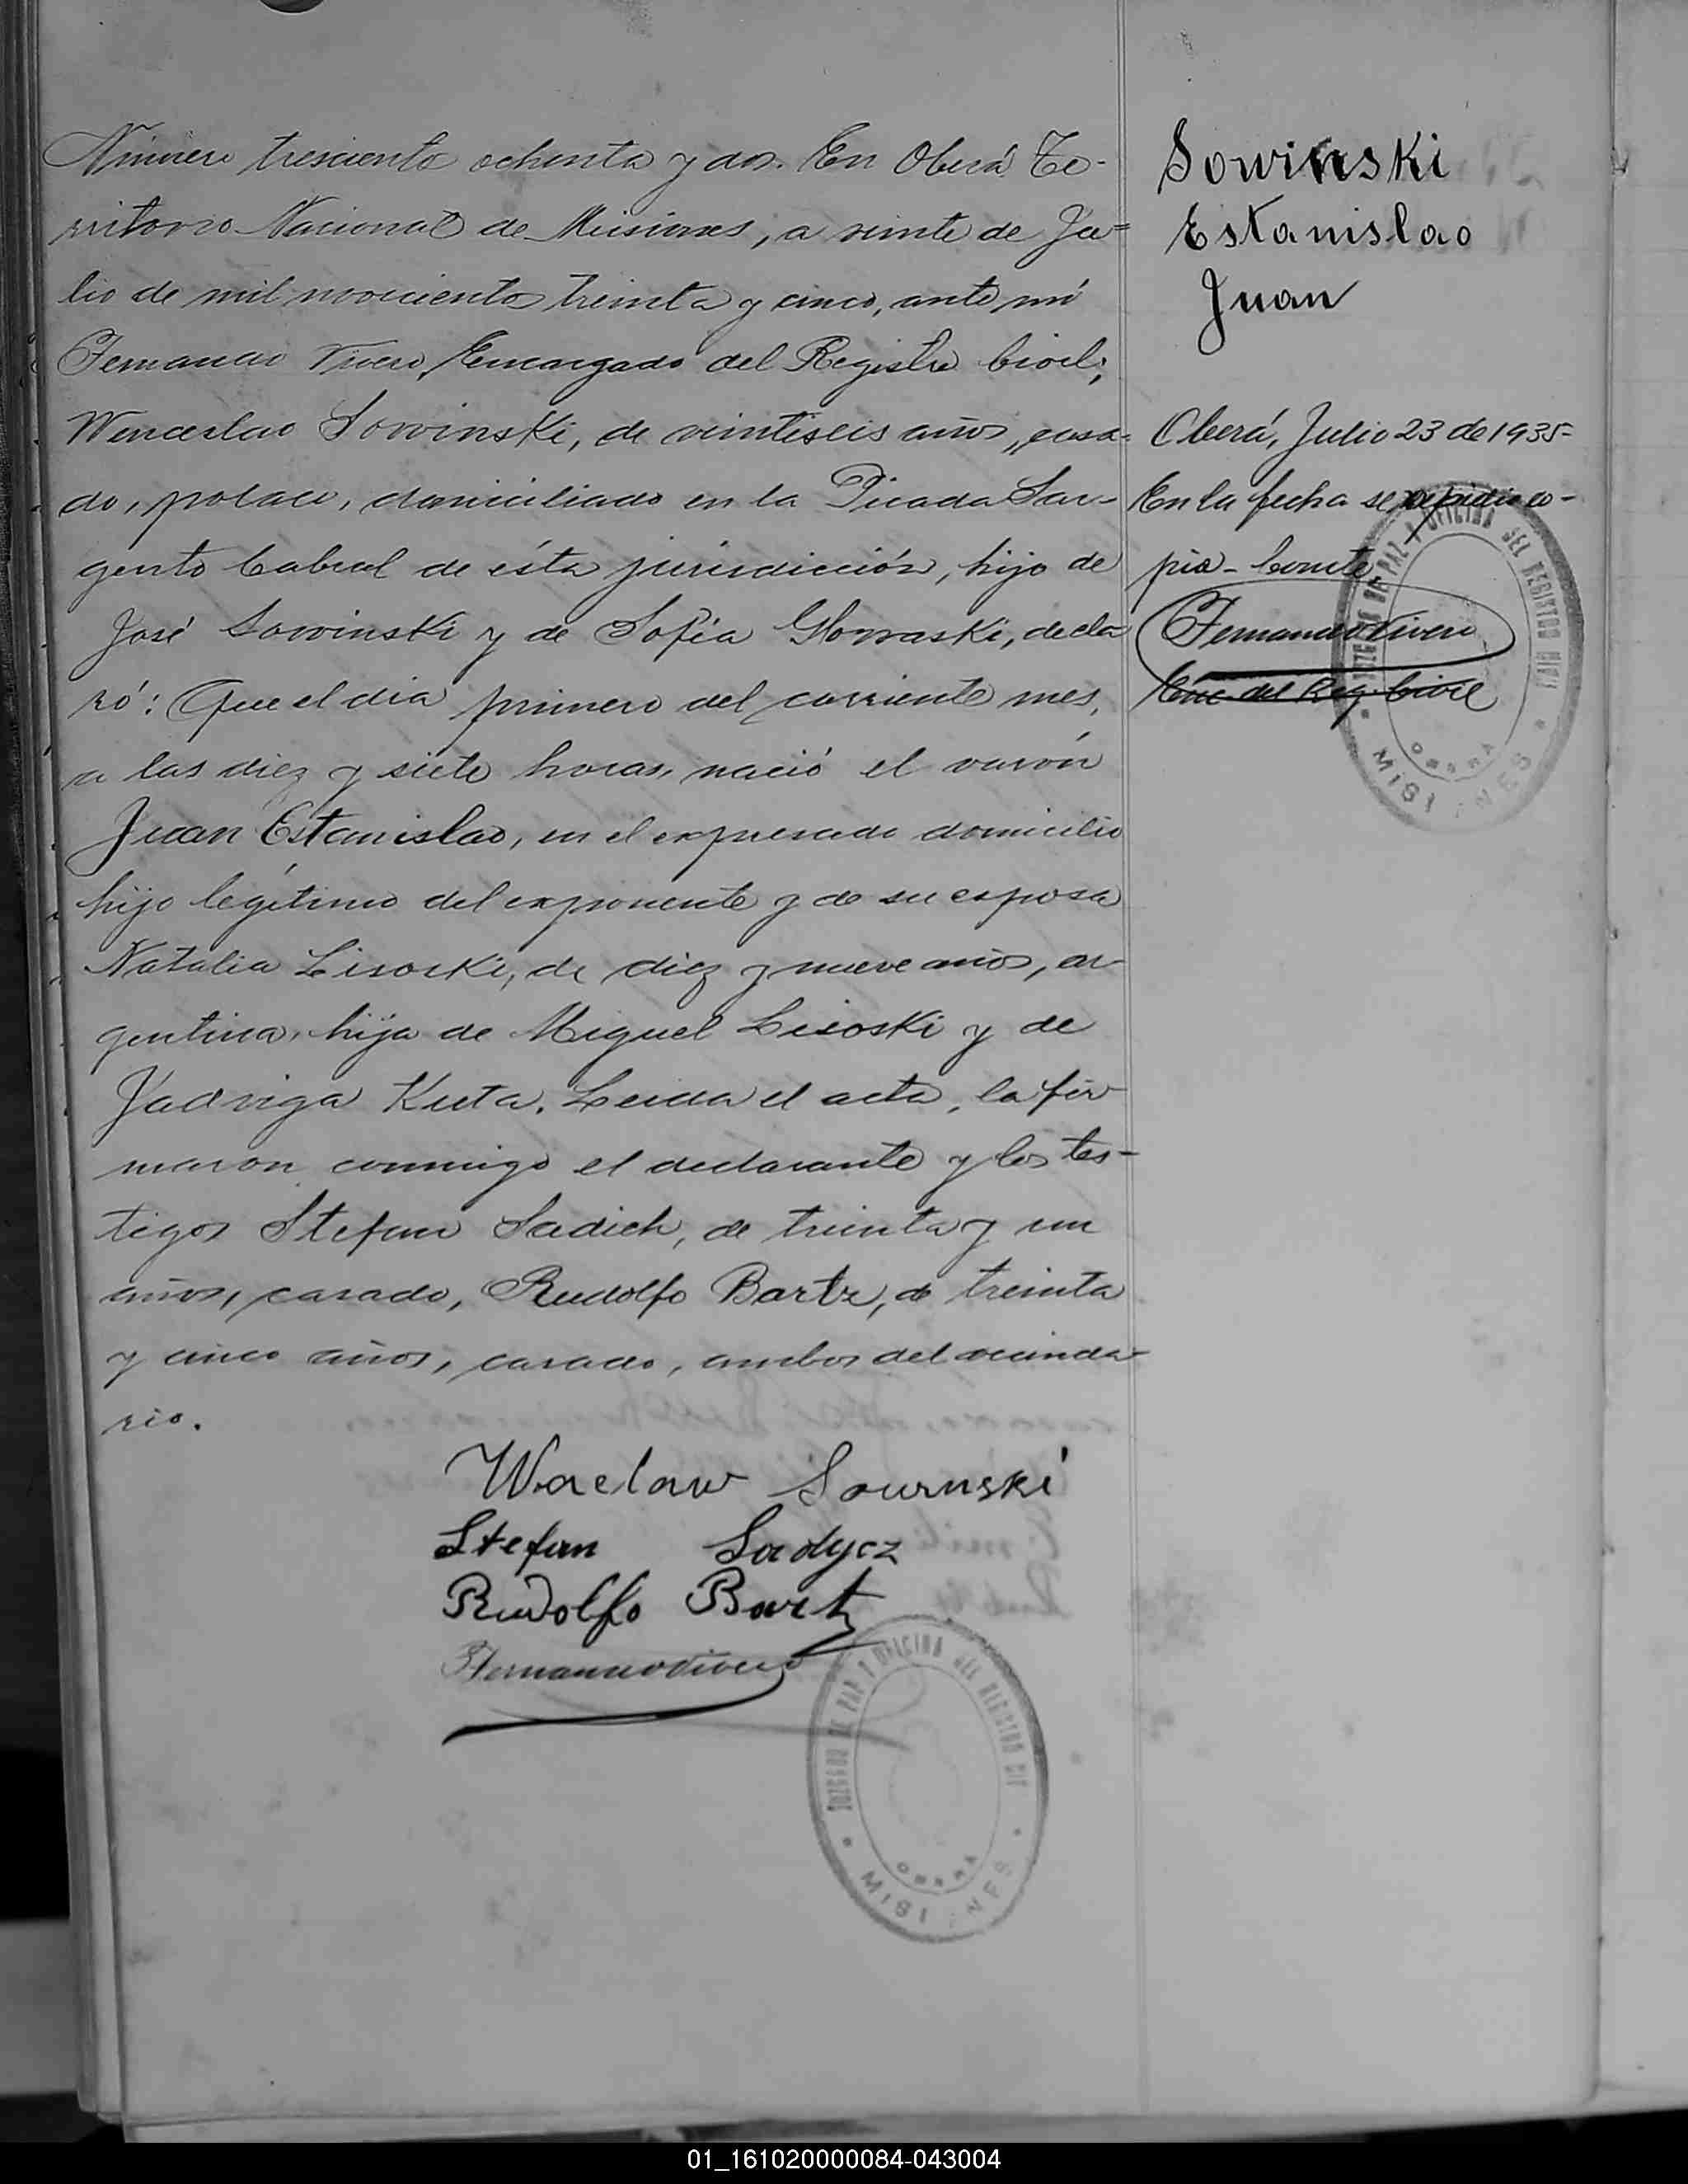 Número tresciento ochenta y dos. En Oberá Te-
rritorio Nacional de Misiones, a veinte de Ju=
lio de mil novecientos treinta y cinco, ante mí
Fernando Vivero, Encargado del Registro Civil;
Wenceslao Sowinski, de veintiseis años, casa-
do, polaco, domiciliado en la Picada Sar-
gento Cabral de ésta jurisdicción, hijo de
José Sowinski y de Sofía Glowaski, decla
ró: Que el dia primero del corriente mes,
a las diez y siete horas, nació el varón
Juan Estanislao, en el expresado domicilio
hijo legítimo del exponente y de su esposa
Natalia Lisoski, de diez y nueve años, ar-
gentina, hija de Miguel Lisoski y de
Yadviga Kuta. Leida el acta, la fir
maron conmigo el declarante y los tes-
tigos Stefan Sadich, de treinta y un
años, casado, Rudolfo Bartz, de treinta
y cinco años, casado, ambos del vecinda-
rio.
Waclaw Sowinski
Stefan Sadycz
Rudolfo Bartz
Fernando Vivero
JUZGADO DE PAZ Y OFICINA DEL REGISTRO CIVIL
OBERÁ
MISIONES
Sowinski
Estanislao
Juan
Oberá, Julio 23 de 1935=
En la fecha se expidió co-
pia - Conste
Fernando Vivero
Enc del Reg. Civil
JUZGADO DE PAZ Y OFICINA DEL REGISTRO CIVIL
OBERÁ
MISIONES
01_161020000084-043004